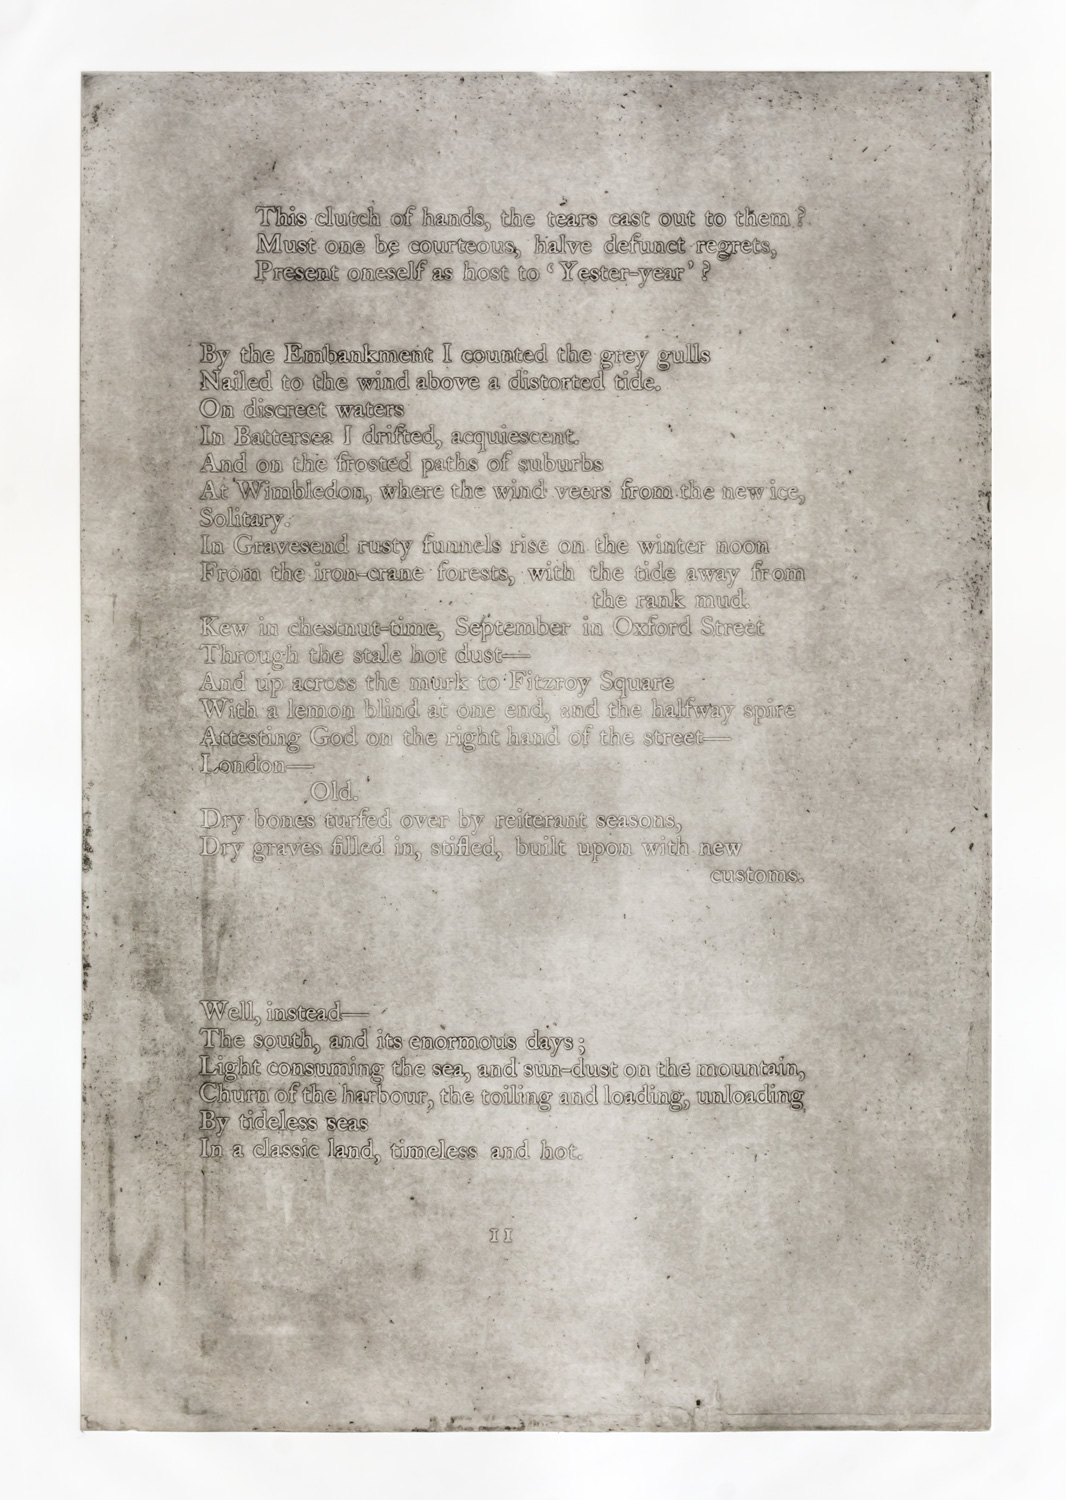 This clutch of hands, the tears cast out to them?
Must one be courteous, halve defunct regrets,
Present oneself as host to ‘Yester-year’?
By the Embankment I counted the grey gulls
Nailed to the wind above a distorted tide.
On discreet waters
In Battersea I drifted, acquiescent.
And on the frosted paths of suburbs
At Wimbledon, where the wind veers from the new ice,
Solitary.
In Gravesend rusty funnels rise on the winter noon
From the iron-crane forests, with the tide away from
the rank mud.
Kew in chestnut-time, September in Oxford Street
Through the stale hot dust—
And up across the murk to Fitzroy Square
With a lemon blind at one end, and the halfway spire
Attesting God on the right hand of the street—
London—
Old.
Dry bones turfed over by reiterant seasons,
Dry graves filled in, stifled, built upon with new
customs.
Well, instead—
The south, and its enormous days;
Light consuming the sea, and sun-dust on the mountain,
Churn of the harbour, the toiling and loading, unloading
By tideless seas
In a classic land, timeless and hot.
11